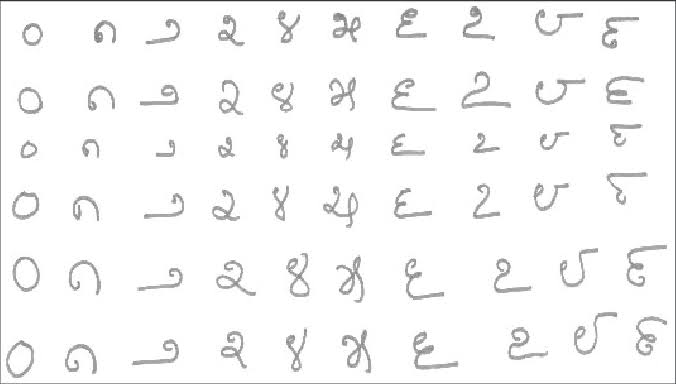 ೦ ೧ ೨ ೩ ೪ ೫ ೬ ೭ ೮ ೯
೦ ೧ ೨ ೩ ೪ ೫ ೬ ೭ ೮ ೯
೦ ೧ ೨ ೩ ೪ ೫ ೬ ೭ ೮ ೯
೦ ೧ ೨ ೩ ೪ ೫ ೬ ೭ ೮ ೯
೦ ೧ ೨ ೩ ೪ ೫ ೬ ೭ ೮ ೯
೦ ೧ ೨ ೩ ೪ ೫ ೬ ೭ ೮ ೯